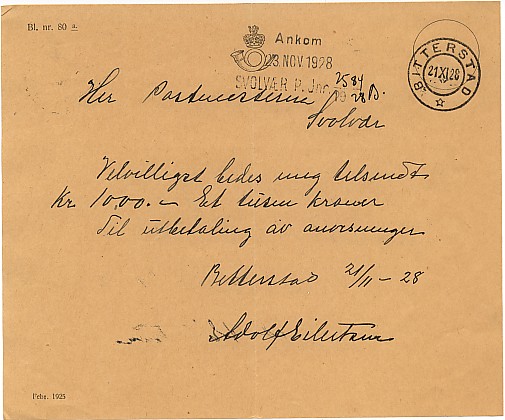 Bl. nr. 80 a.
Ankom
23 NOV 1928
SVOLVÆR P. Jnr.
BITTERSTAD
21 XI 28
Herr Postmesteren
Svolvær
Velvilligst bedes meg tilsendt
Kr 1000.- Et tusen kroner
til utbetaling av anvisninger
Bitterstad 21/11 - 28
Adolf
Febr. 1925